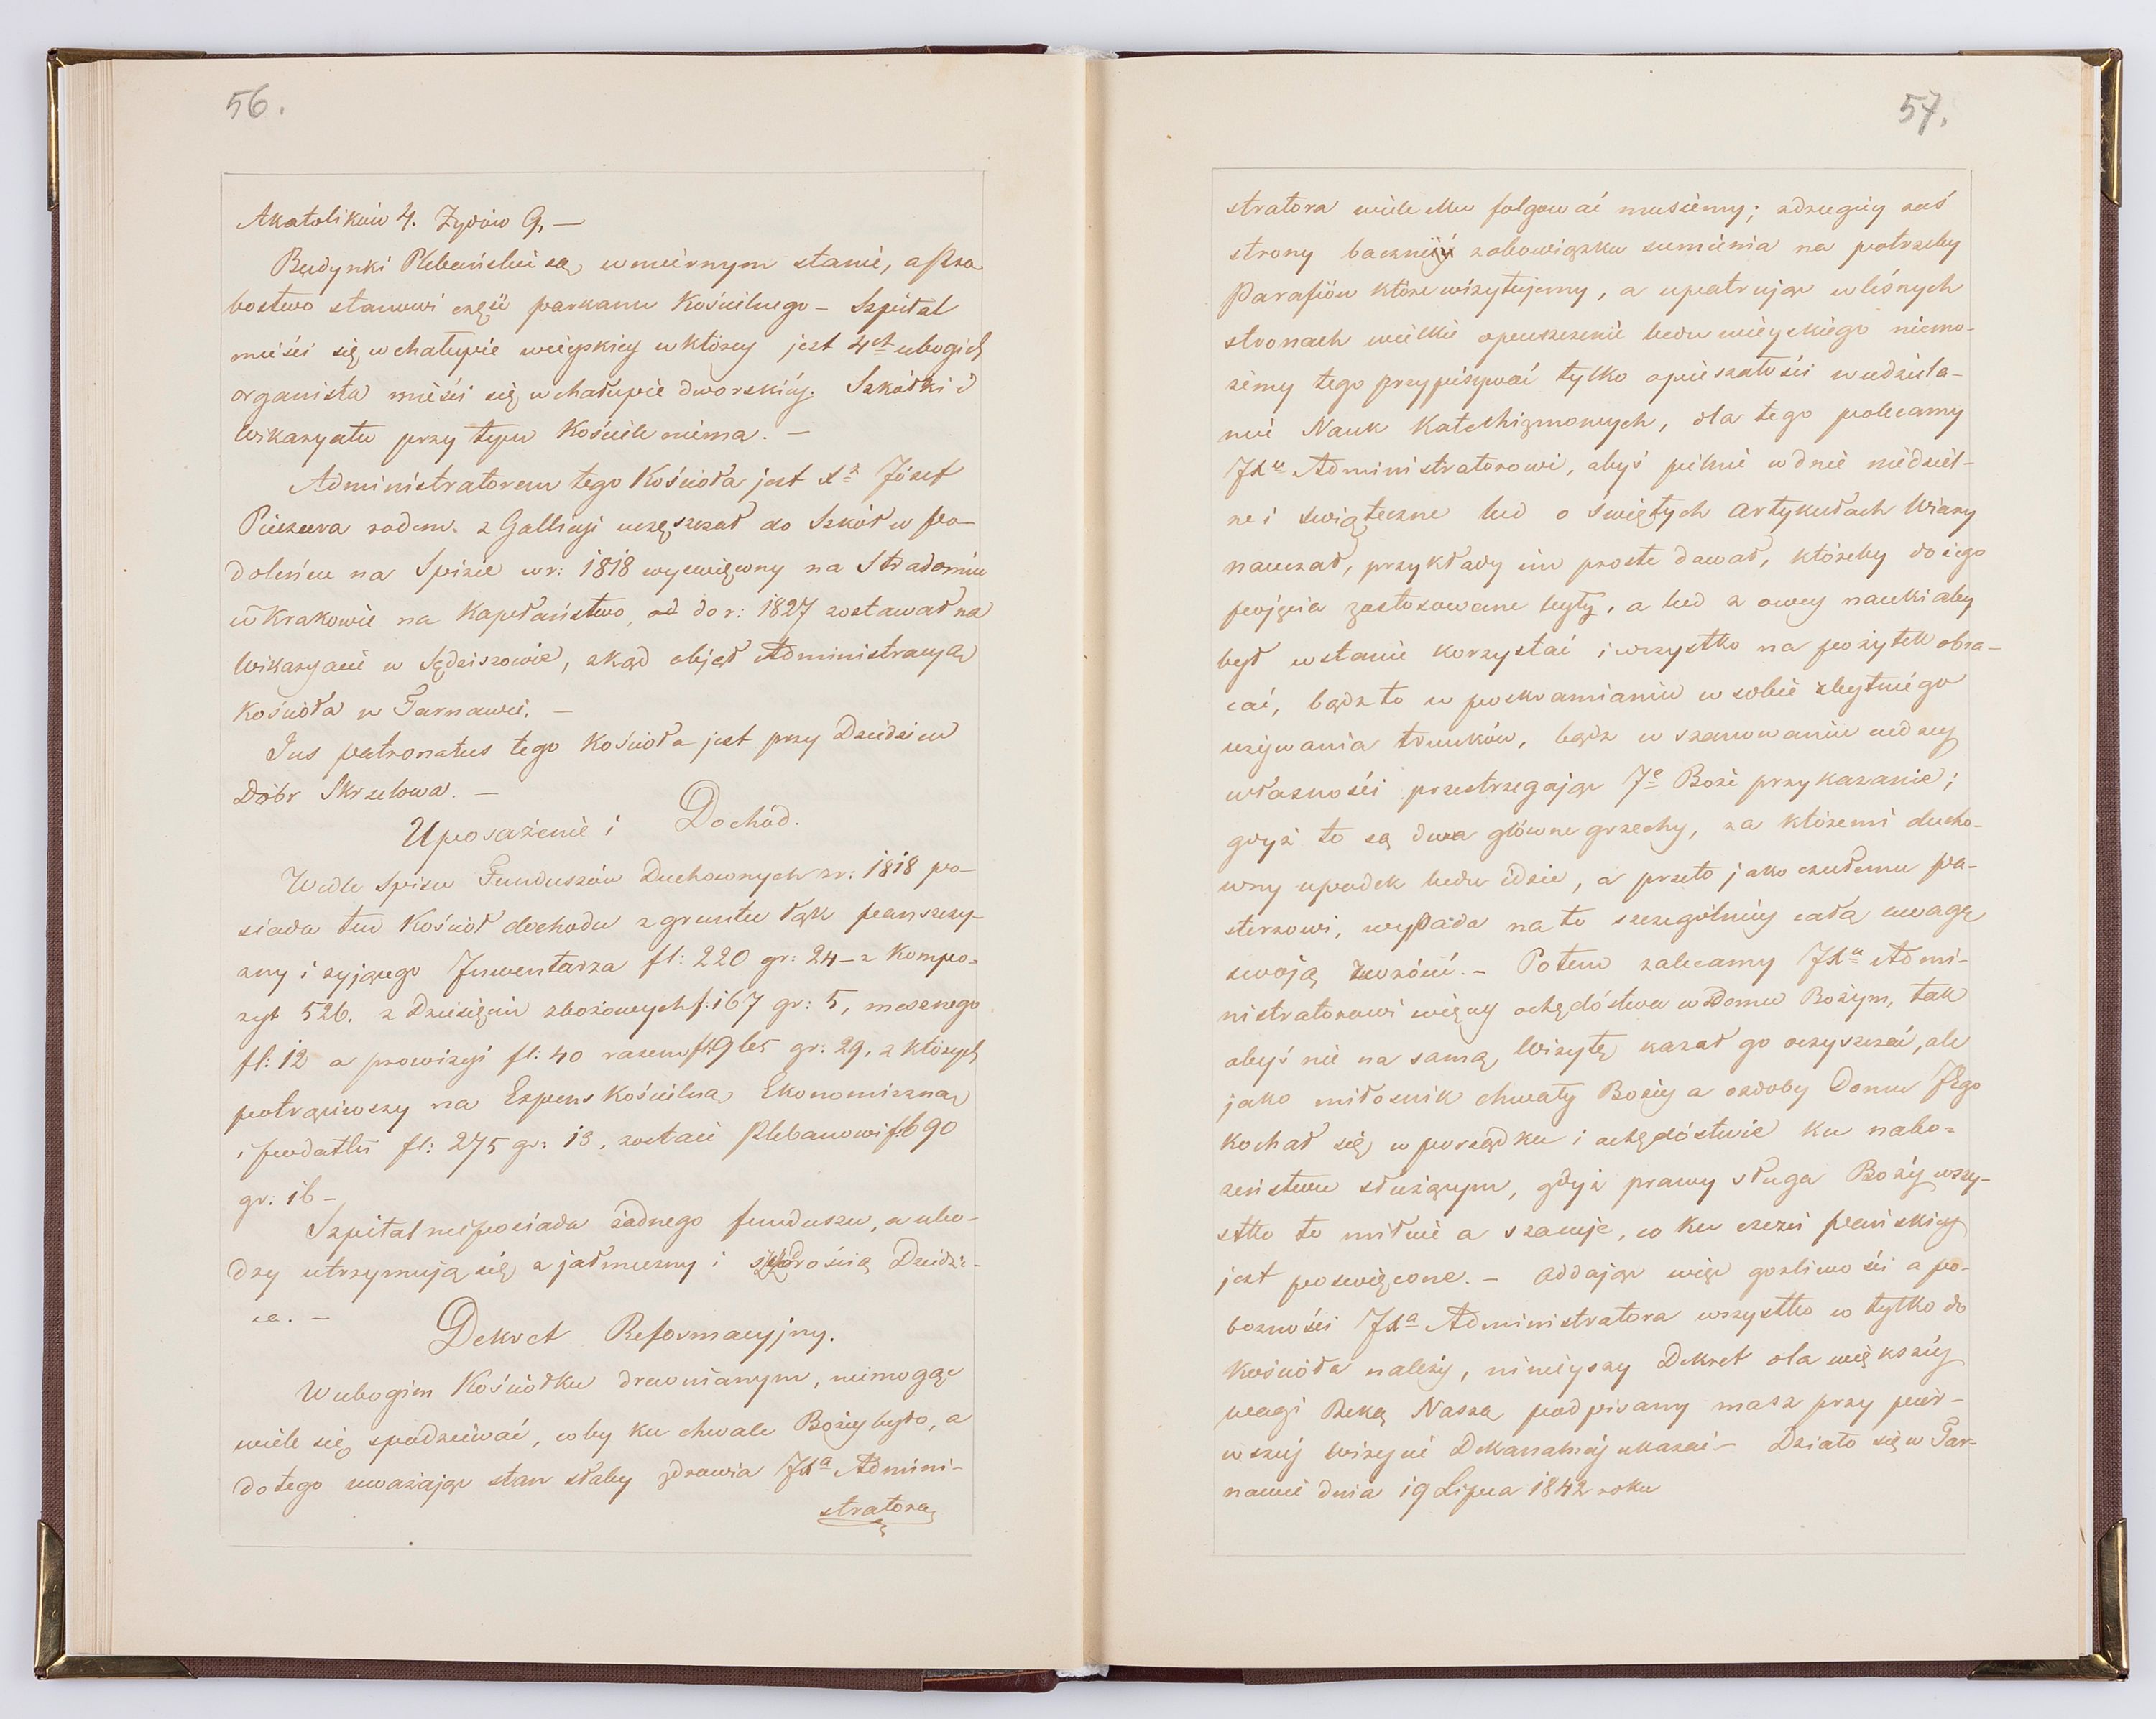 56.
Akatolików 4. Żydów 9, —
Budynki Plebańskie są w miernym stanie, a
bostwo stanowi część parkanu Kościelnego – Szpital
mieści się w chałupie wieyskiey w którey jest 4ch ubogich
organista mieści się w chałupie dworskiéy. Szkółki i
Wikaryatu przy tym Kościele niema. —
Administratorem tego Kościoła jest Xz Józef
rodem z Gallicyi uczęszczał do Szkół w Po-
dolińcu na Spiżie w r: 1818 wyświęcony na Stradomiu
w Krakowie na Kapłaństwo, od do r: 1827 zostawał na
Wikaryacie w Sędziszowie, zkąd objął Administracyą
Kościoła w Tarnawie. —
Jus patronatus tego Kościoła jest przy Dziedzicu
Dóbr Skrzelowa. —
Uposażenie i Dochód.
Wedle Spisu Funduszów Duchownych z r: 1818 po-
siada ten Kościół dochodu z gruntu łąk pańszczy-
zny i żyjącego Inwentarza fl: 220 gr: 24 – z Kompo-
zyt 526. z Dziesięcin zbożowych f: 167 gr: 5, mesznego
fl: 12 a prowizyi fl: 40 razem fl: 965 gr: 29, z których
potrąciwszy na Expens Kościelną Ekonomiczną
i podatki fl: 275 gr: 13, zostaie Plebanowi f: 690
gr: 16 –
Szpital nieposiada żadnego funduszu, a ubo-
dzy utrzymują się z jałmużny i szczodrością Dziedzi-
ca. —
Dekret Reformacyjny.
W ubogim Kościółku drewnianym, niemogąc
wiele się spodziéwać, coby ku chwale Bożey było, a
do tego uważając stan słaby zdrowia JXa Admini-
stratora
57.
stratora wiele Mu folgować musiemy; z drugiey zaś
strony baczni z obowiązku sumienia na potrzeby
Parafiów które wizytujemy, a upatrując w leśnych
stronach wielkie opuszczenie ludu wieyskiego niemo-
żémy tego przypisywać tylko opieszałości w udziela-
niu Nauk Katechizmowych, dla tego polecamy
JXu Administratorowi, abyś pilnie w dnie niedziel-
ne i świąteczne lud o świętych artykułach Wiary
nauczał, przykłady im proste dawał, któreby do iego
pojęcia zastosowane były, a lud z owey nauki aby
był w stanie korzystać i wszystko na pożytek obra-
cać, bądz to w poskramianiu w sobie zbytniégo
używania trunków, bądz w szanowaniu cudzey
własności przestrzegając 7e Boże przykazanie;
gdyż to są dwa główne grzechy, za któremi ducho-
wny upadek ludu idzie, a przeto jako czułemu pa-
sterzowi, wypada na to szczególniey całą uwagę
swoją zwrócić. – Potem zalecamy JXu Admi-
nistratorowi więcey ochędóstwa w Domu Bożym, tak
abyś nie na samą Wizytę kazał go oczyszczać, ale
jako miłosnik chwały Bożey a ozdoby Domu Jego
kochał się w porządku i ochędóstwie ku nabo-
żeństwu służącym, gdyż prawy sługa Boży wszy-
stko to miłuie a szanuje, co ku czci pańskiey
jest poswięcone. – Oddając więc gorliwości a po-
bożności JXa Administratora wszystko co tylko do
Kościoła należy, ninieyszy Dekret dla większéy
wagi Ręką Naszą podpisany masz przy pier-
wszéj Wizycie Dekanalnéj okazać – Działo się w Tar-
nawie dnia 19 Lipca 1842 roku